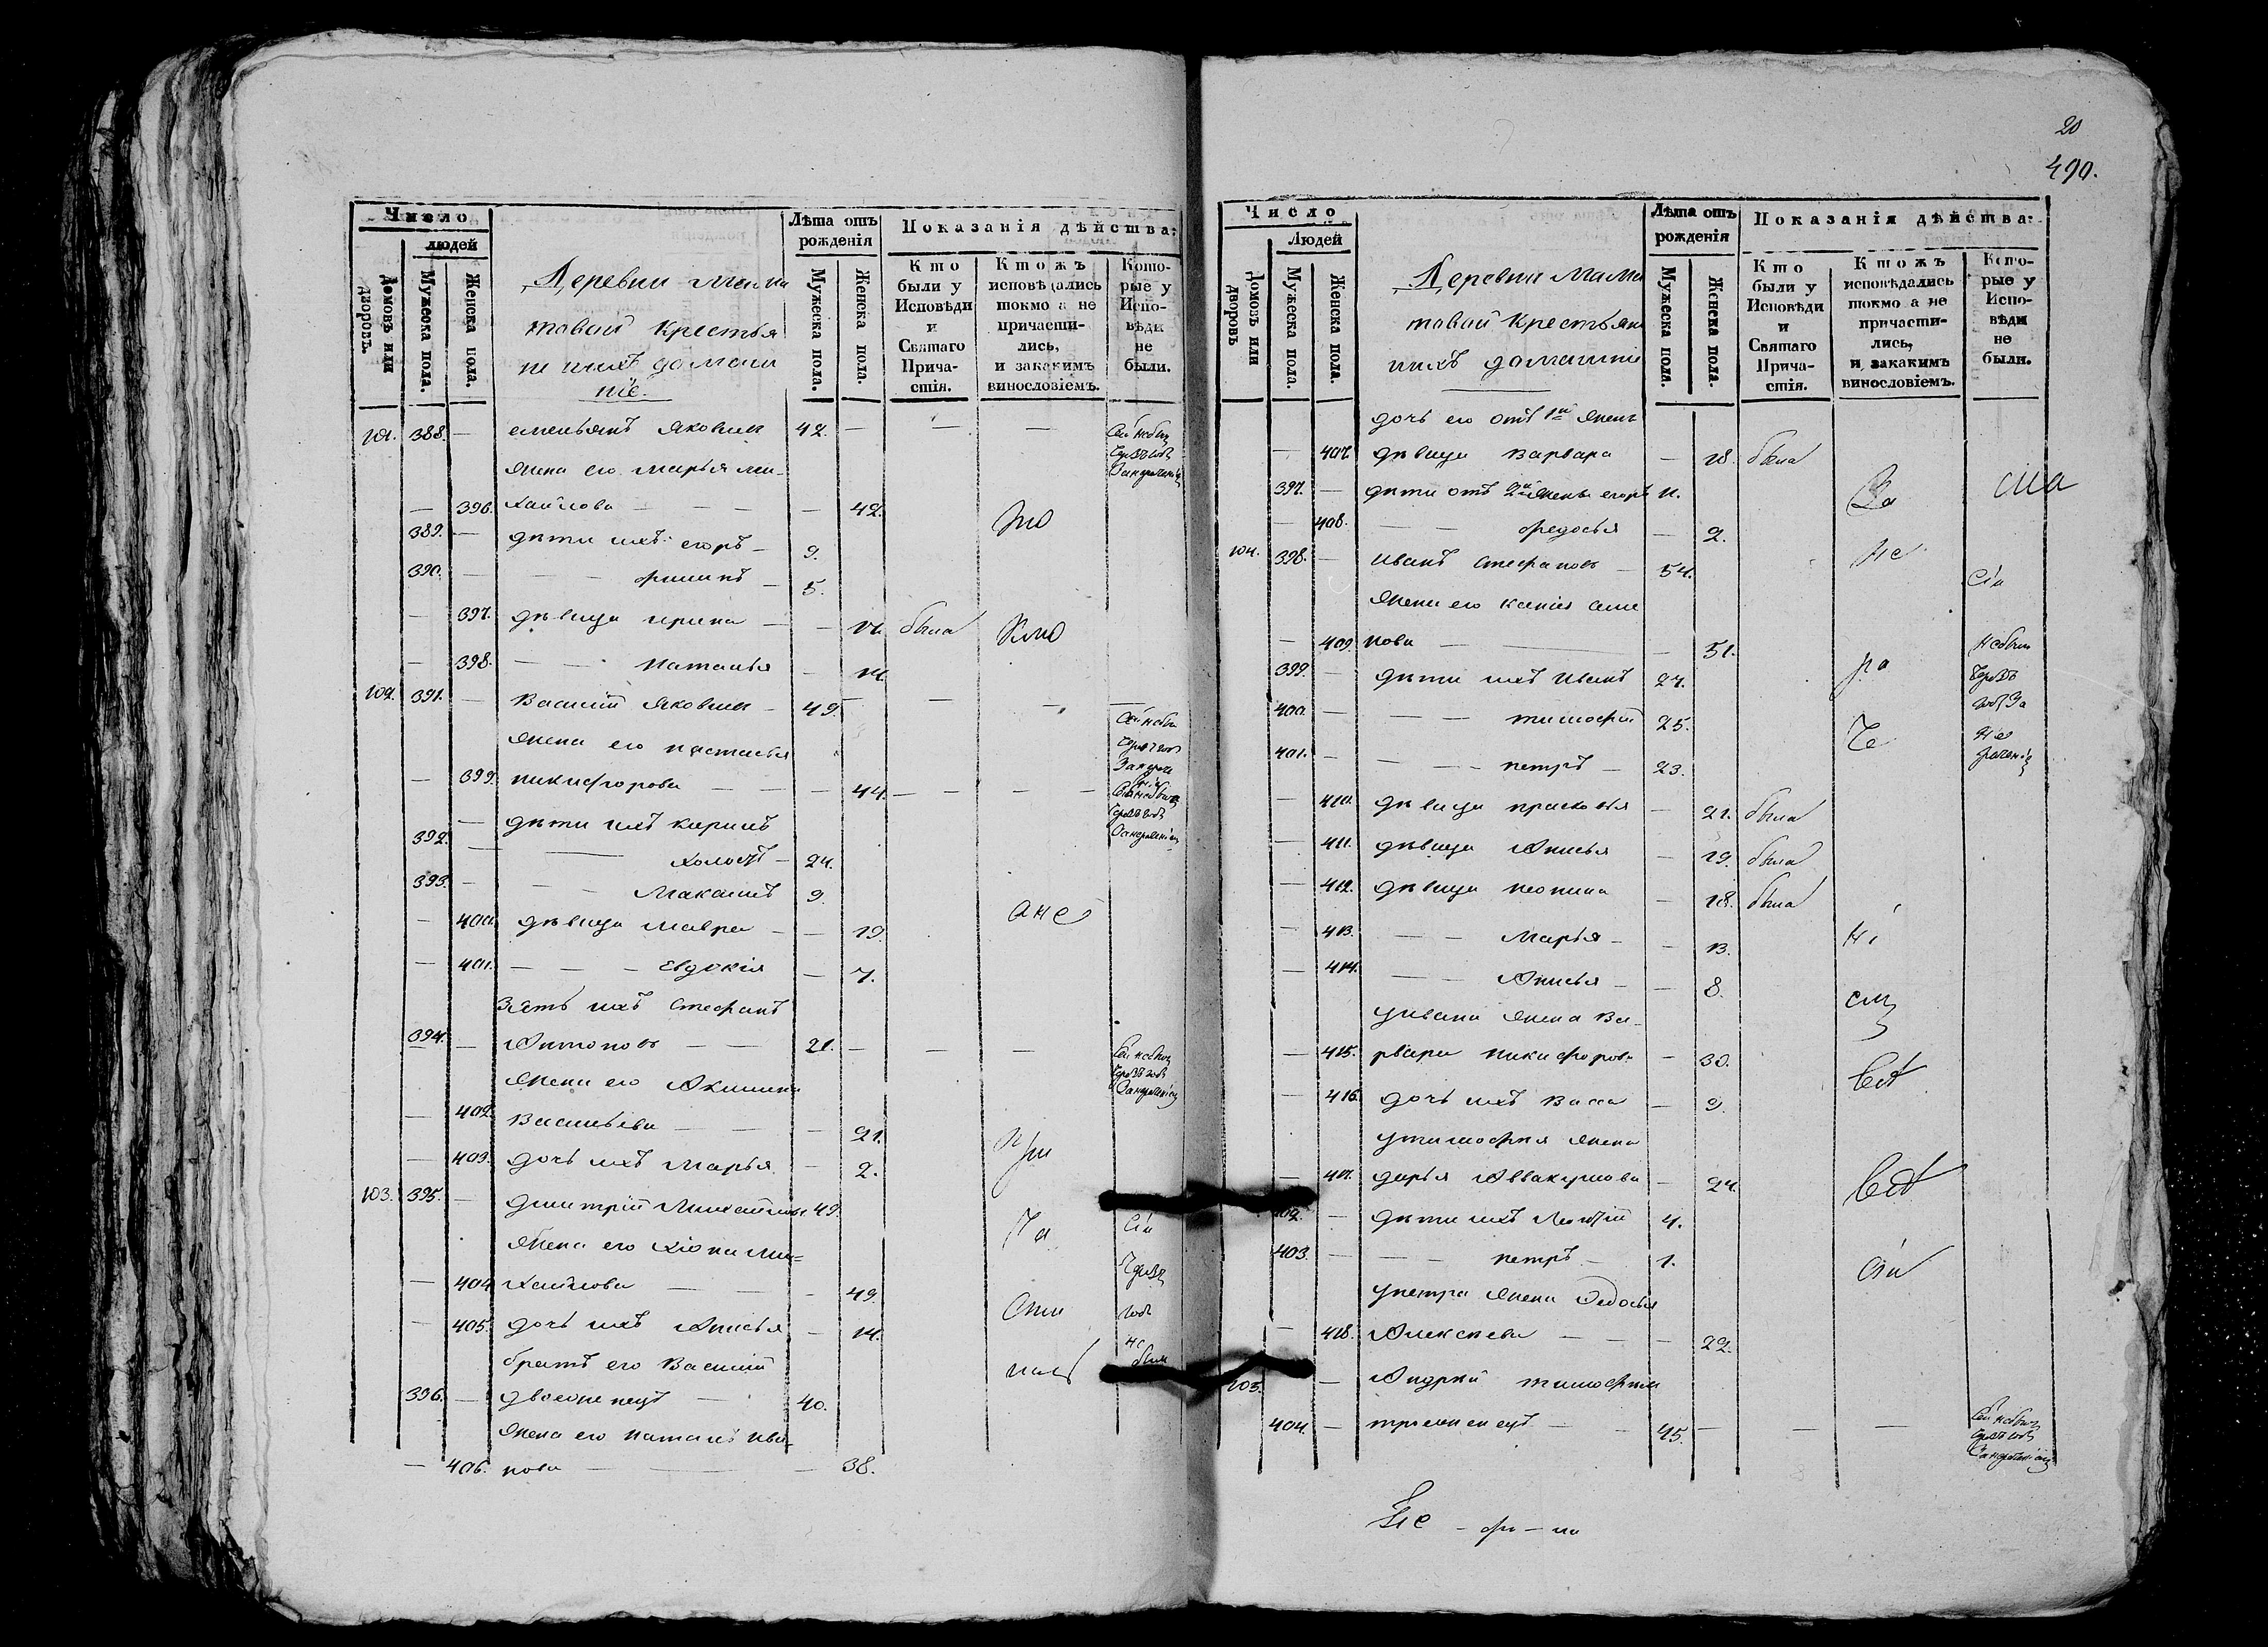 Число
людей
Домовъ или дворовъ.
Мужеска пола.
Женска пола.
Деревни Мама
товой крестья
не и ихъ домаш
ніе.
Лѣта отъ рожденія
Мужеска пола.
Женска пола.
Показанія дѣйства:
Кто были у Исповѣди и Святаго Причастія.
Ктожъ исповѣдались токмо а не причастились, и закакимъ винословіемъ.
Которые у Исповѣди не были.
101. 388. — емельянъ Яковлевъ 42. — — —
жена его Марья ми-
— 396. хайлова — — — 42.
389. — дѣти ихъ: егоръ — 9.
390. — — — филипъ — 5.
— 397. дѣвица ирина — — была
— 398. — — наталья —
102. 391. — Василій Яковлевъ — 49. — —
жена его настасья
— 399. никифорова — — — 44. — — — —
— дѣти ихъ кирилъ
392. — — холостъ — 24.
393. — — — Макаимъ 9.
— 400. дѣвица Мавра — — 19.
а не
— 401. — — — Евдокія — 7.
Зять ихъ Стефанъ
394. — Антоновъ — — 21. — — —
жена его Акилина
— 402. Васильева — — — 21.
при
— 403. дочь ихъ Марья — 2.
103. 395. — дмитрій Михайловъ 49.
ча
жена его Хіона Ми-
— 404. хайлова — — — 49.
сти
годъ
— 405. дочь ихъ Анисья — 14.
братъ его Василій
не были
396. — двоеженецъ — 40.
жена его Наталья ива-
— 406. нова — — — 38.
20
490.
Число
Людей
Домовъ или дворовъ
Мужеска пола.
Женска пола.
Деревни Мама
товой крестьяне
и ихъ домашніе
Лѣта отъ рожденія
Мужеска пола.
Женска пола.
Показанія дѣйства:
Кто были у Исповѣди и Святаго Причастія.
Ктожъ исповѣдались токмо а не причастились, и закакимъ винословіемъ.
Которые у Исповѣди не были.
дочь его отъ 1й жены
— 407. дѣвица Варвара — 18. была
397. — дѣти отъ 2й жены егоръ 11.
За
— 408. — — федосья — 2.
104. 398. — Иванъ Стефановъ — 54.
не
сіи
жена его ксенія семе
— 409. нова — — — 51.
не были
399. — дѣти ихъ Иванъ 27.
ра
400. — — — тимофей 25.
че
401. — — — петръ — 23.
— 410. дѣвица прасковья — 21. была
— 411. дѣвица Анисья — 19. была
— 412. дѣвица неонила — 18. была
— 413. — — Марья — — 13.
ні
— 414. — — Анисья — — 8.
уивана жена Ва-
— 415. рвара никифорова — 30.
— 416. дочь ихъ Васса — 9.
утимофея жена
— 417. дарья Аввакумова — 24.
402. — дѣти ихъ Леонтій 4.
403. — — — петръ — 1.
сіи
упетра жена Федосья
— 418. Алексѣева — — — 22.
105. — Андрей тимофѣевъ
404. — троеженецъ — — 45. — — —